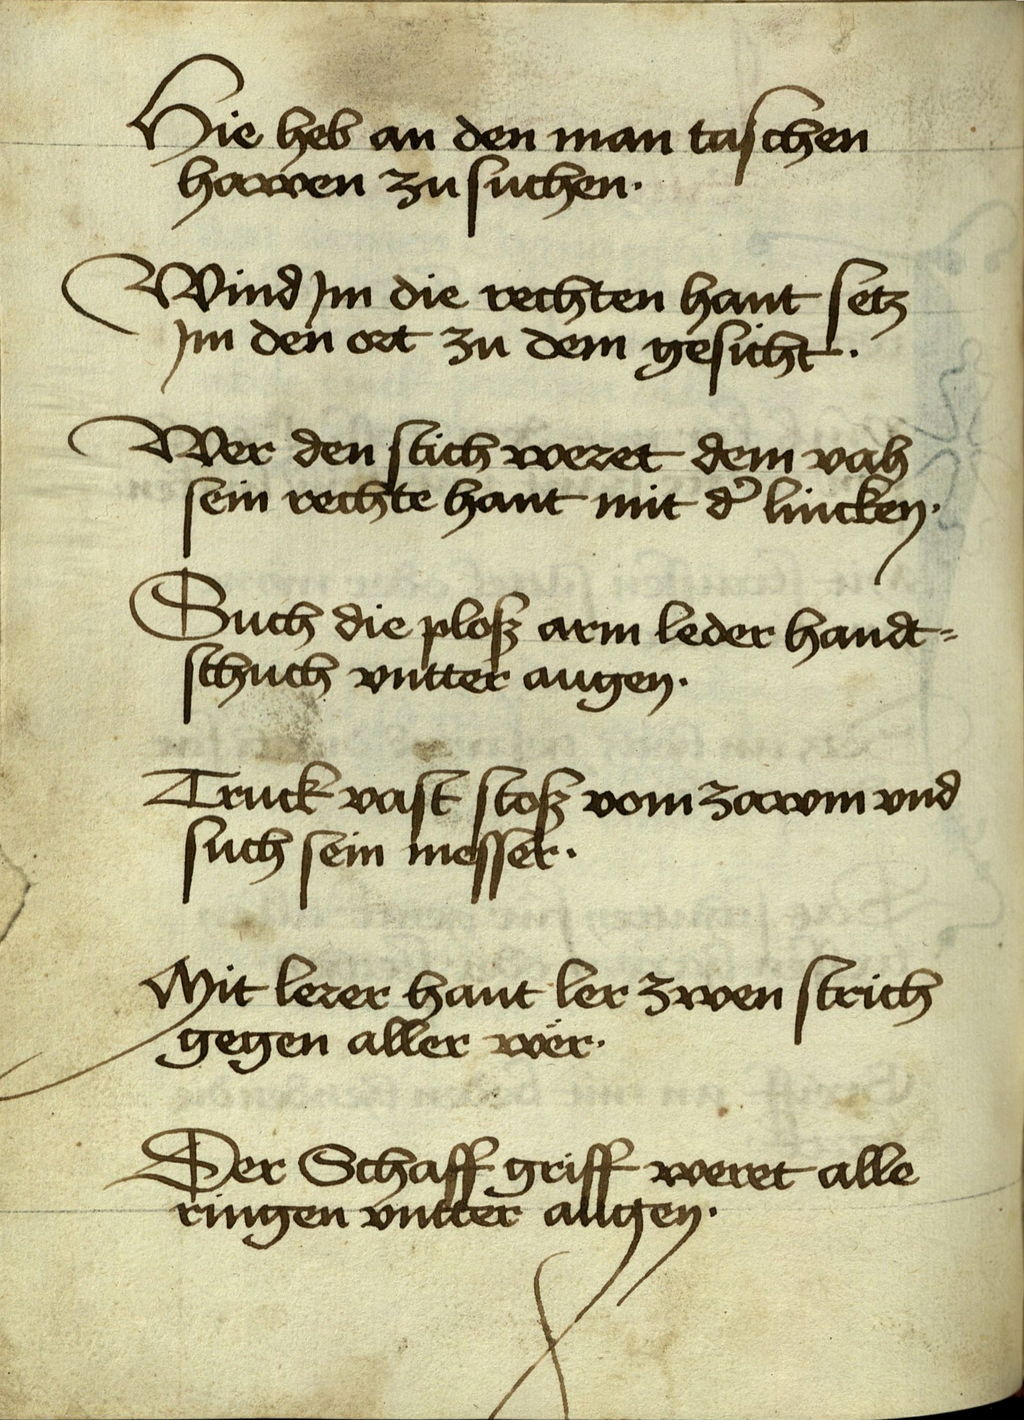 Hie heb an den man taschen
hawen zu suchen.
Wind Jm die rechten hant setz
Jm den ort zu dem gesicht.
Wer den stich weret dem vah
sein rechte hant mit dˀ lincken.
Such die ploß arm leder handt=
schuch vntter augen.
Truck vast stoß vom zawm vnd
such sein messer.
Mit lerer hant ler zwen strich
gegen aller wër.
Der Schaff griff weret alle
ringen vntter augen.